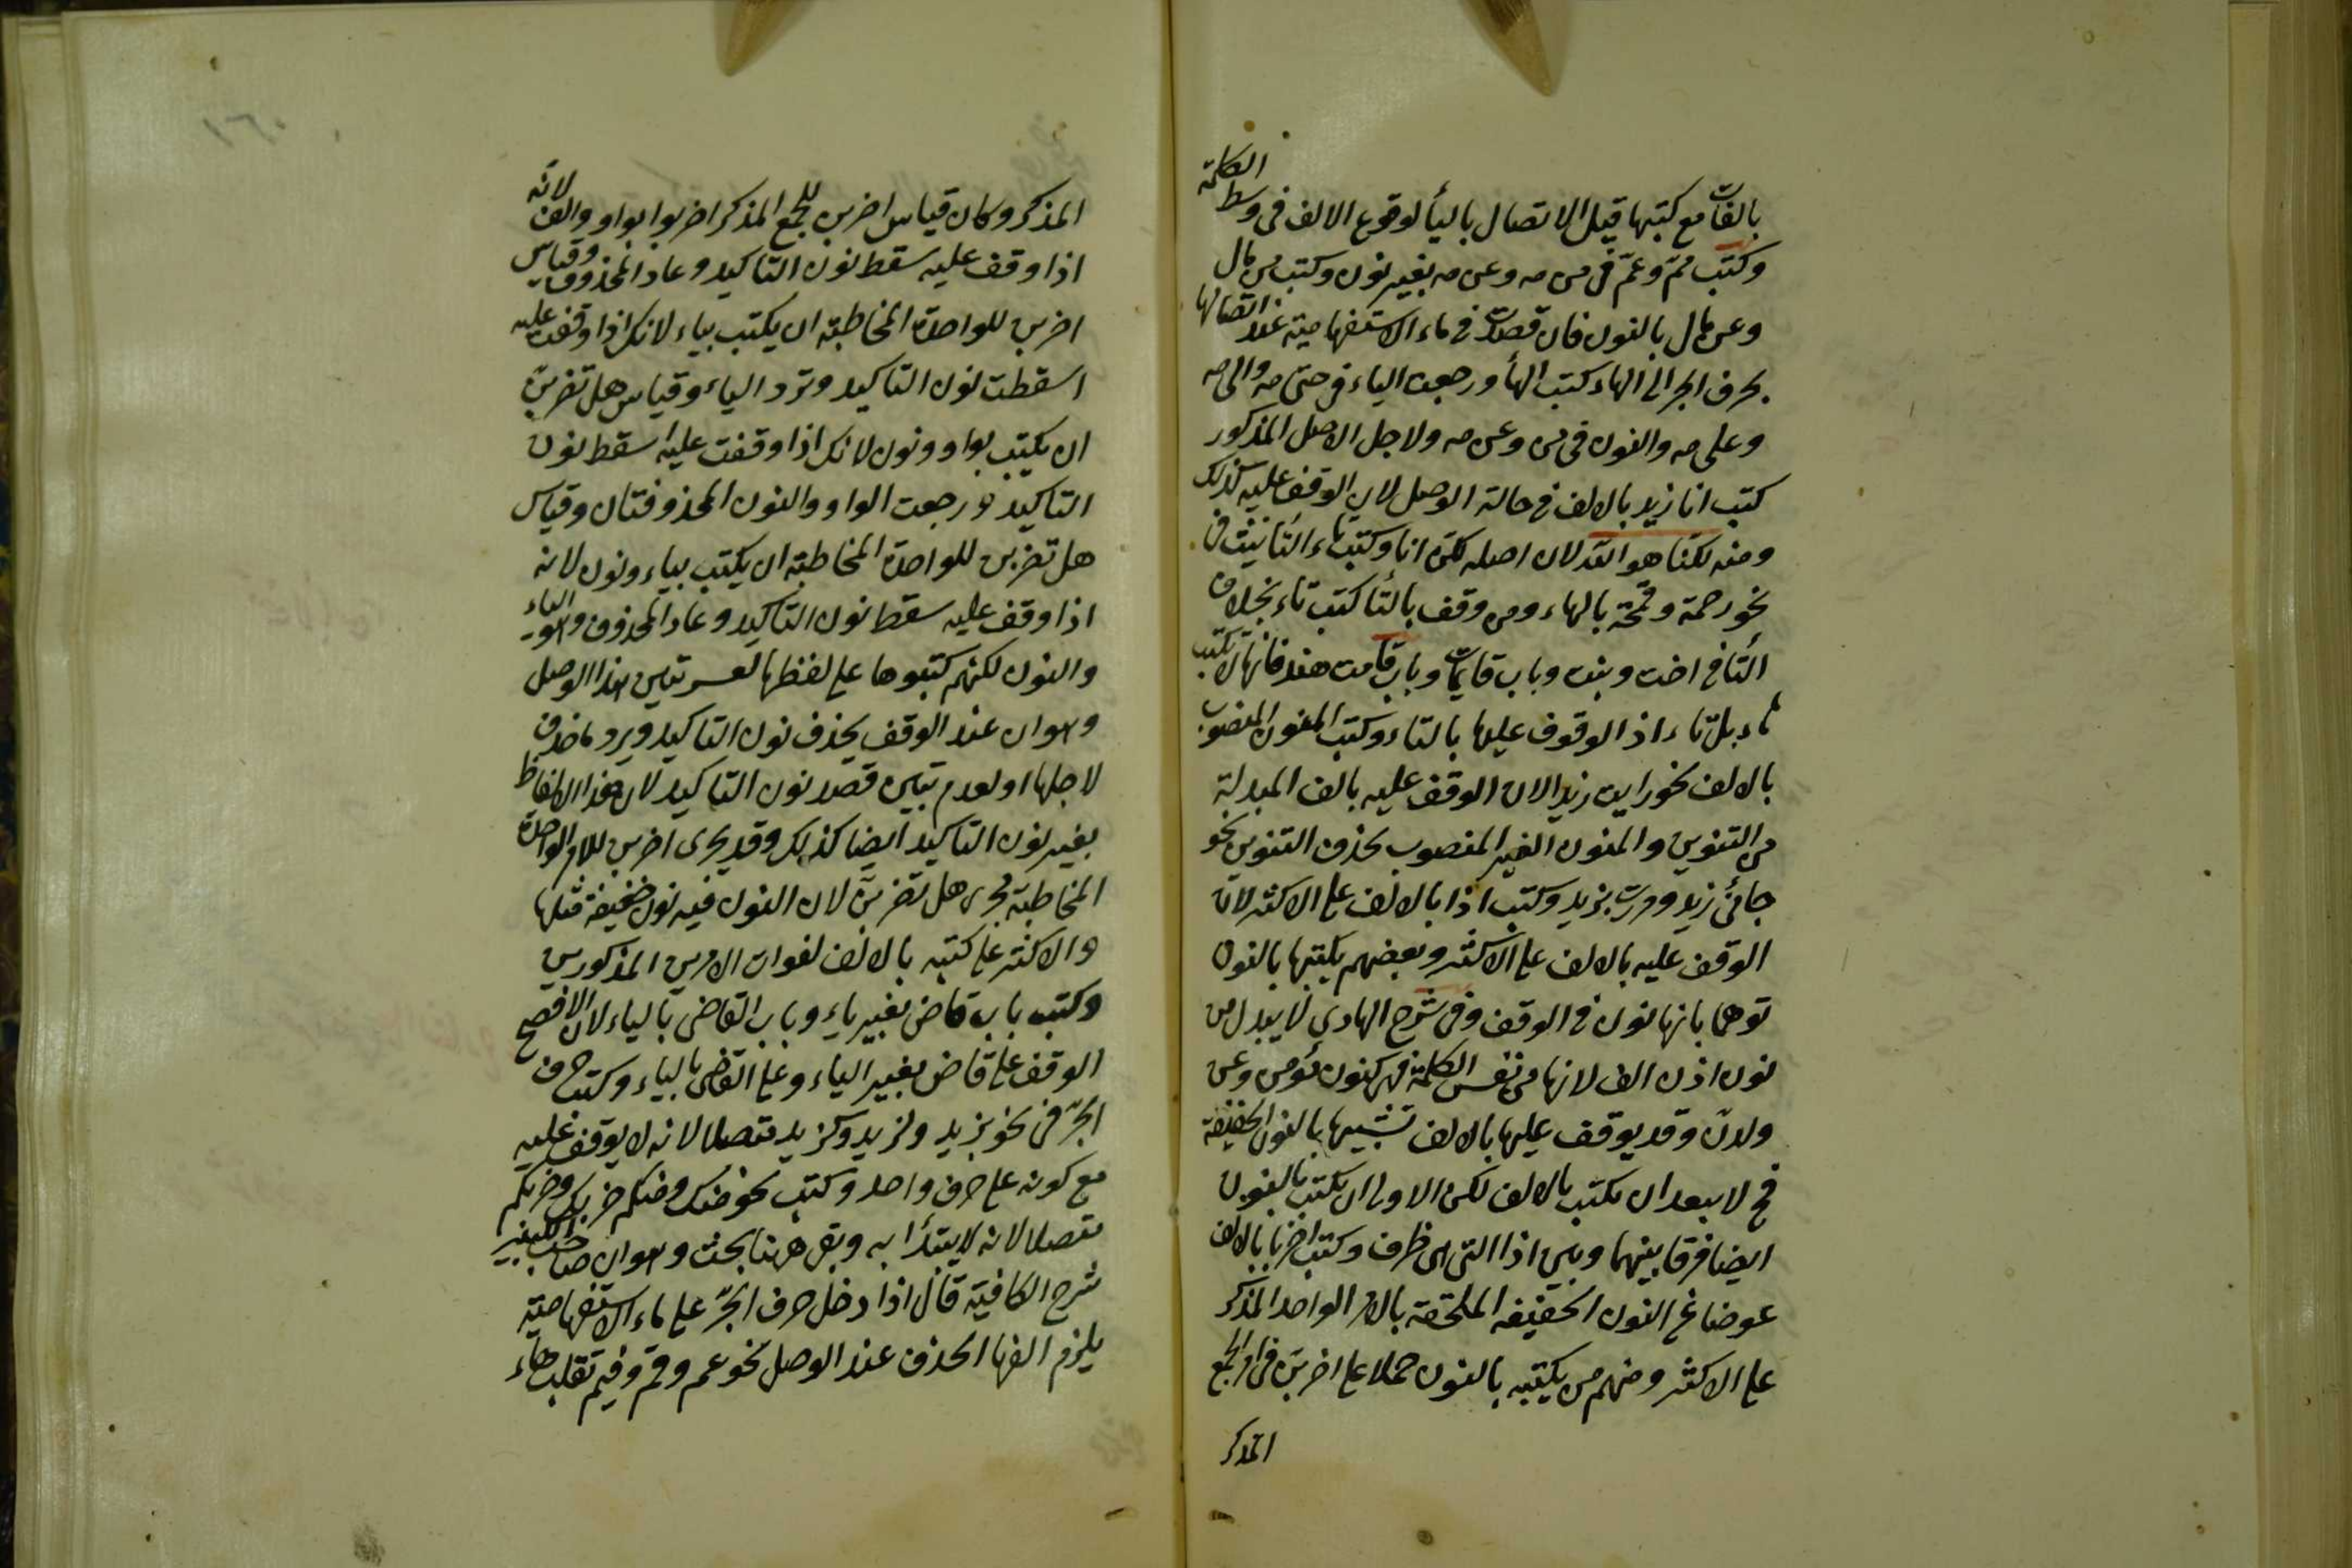 بالفات مع كتبها قبل الاتصال بالياء لوقوع الالف فى وسط الكلمة
وكتب ممّ وعمّ فى من مه وعن مه بغير نون وكتب من مال
وعن مال بالنون فان قصدت فى ماء الاستفهامية عند اتصالها
بحرف الجر الى الهاء كتب الهاء ورجعت الياء فى حتى مه والى مه
وعلى مه والنون فى من وعن مه ولاجل الاصل المذكور
كتب انا زيد بالالف فى حالة الوصل لان الوقف عليه كذلك
ومنه لكنا هو الله لان اصله لكن انا وكتب تاء التأنيث فى
نحو رحمة وقمحة بالهاء ومن وقف بالتاء كتب تاء بخلاف
التاء فى اخت وبنت وباب قايمات وباب قامت هند فانها لا تكتب
هاء بل تاء اذ الوقوف عليها بالتاء وكتب المنون المنصوب
بالالف نحو رايت زيدا لان الوقف عليه بالف المبدلة
من التنوين والمنون الغير المنصوب بحذف التنوين نحو
جائنى زيد ومررت بزيد وكتب اذا بالالف على الاكثر لان
الوقف عليه بالالف على الاكثر وبعضهم يكتبها بالنون
توهما بانها نون فى الوقف وفى شرح الهادى لا يبدل من
نون اذن الف لانها من نفس الكلمة فهى كنون من وعن
ولدن وقد يوقف عليها بالالف تشبيها بالنون الخفيفة
فح لا يبعد ان يكتب بالالف لكن الاولى ان يكتب بالنون
ايضا فرقا بينهما وبين اذا التى هى ظرف وكتب اضربا بالالف
عوضا عن النون الخفيفة الملحقة بالامر الواحد المذكر
على الاكثر ومنهم من يكتبه بالنون حملا على اضربن فى امر الجمع
المذكر
المذكر وكان قياس اضربن للجمع المذكر اضربوا بواو والف لانه
اذا وقف عليه سقط نون التاكيد وعاد المحذوف وقياس
اضربن للواحدة المخاطبة ان يكتب بياء لانك اذا وقفت عليه
اسقطت نون التاكيد وترد الياء وقياس هل تضربن
ان يكتب بواو ونون لانك اذا وقفت عليه سقط نون
التاكيد ورجعت الواو والنون المحذوفتان وقياس
هل تضربن للواحدة المخاطبة ان يكتب بياء ونون لانه
اذا وقف عليه سقط نون التاكيد وعاد المحذوف وهو الياء
والنون لكنهم كتبوها على لفظها لعسر تبين هذا الاصل
وهو ان عند الوقف يحذف نون التاكيد ويرد ما حذف
لاجلها او لعدم تبين قصد نون التاكيد لان هذا الالفاظ
بغير نون التاكيد ايضا كذلك وقد يجرى اضربن للامر الواحدة
المخاطبة مجرى هل تضربن لان النون فيه نون خفيفة مثلها
والاكثر على كتبه بالالف لفوات الامرين المذكورين
وكتب باب قاض بغير ياء وباب القاضى بالياء لان الافصح
الوقف على قاض بغير الياء وعلى القاضى بالياء وكتب حرف
الجرّ فى نحو بزيد ولزيد وكزيد متصلا لانه لا يوقف عليه
مع كونه على حرف واحد وكتب نحو منك ومنكم ضربك وضربكم
متصلا لانه لا يبتدأ به وبقى ههنا بحث وهو ان صاحب الكبير
شرح الكافية قال اذا دخل حرف الجرّ على ماء الاستفهامية
يلزم الفها الحذف عند الوصل نحو عم ومم وفيم تقلب هاء